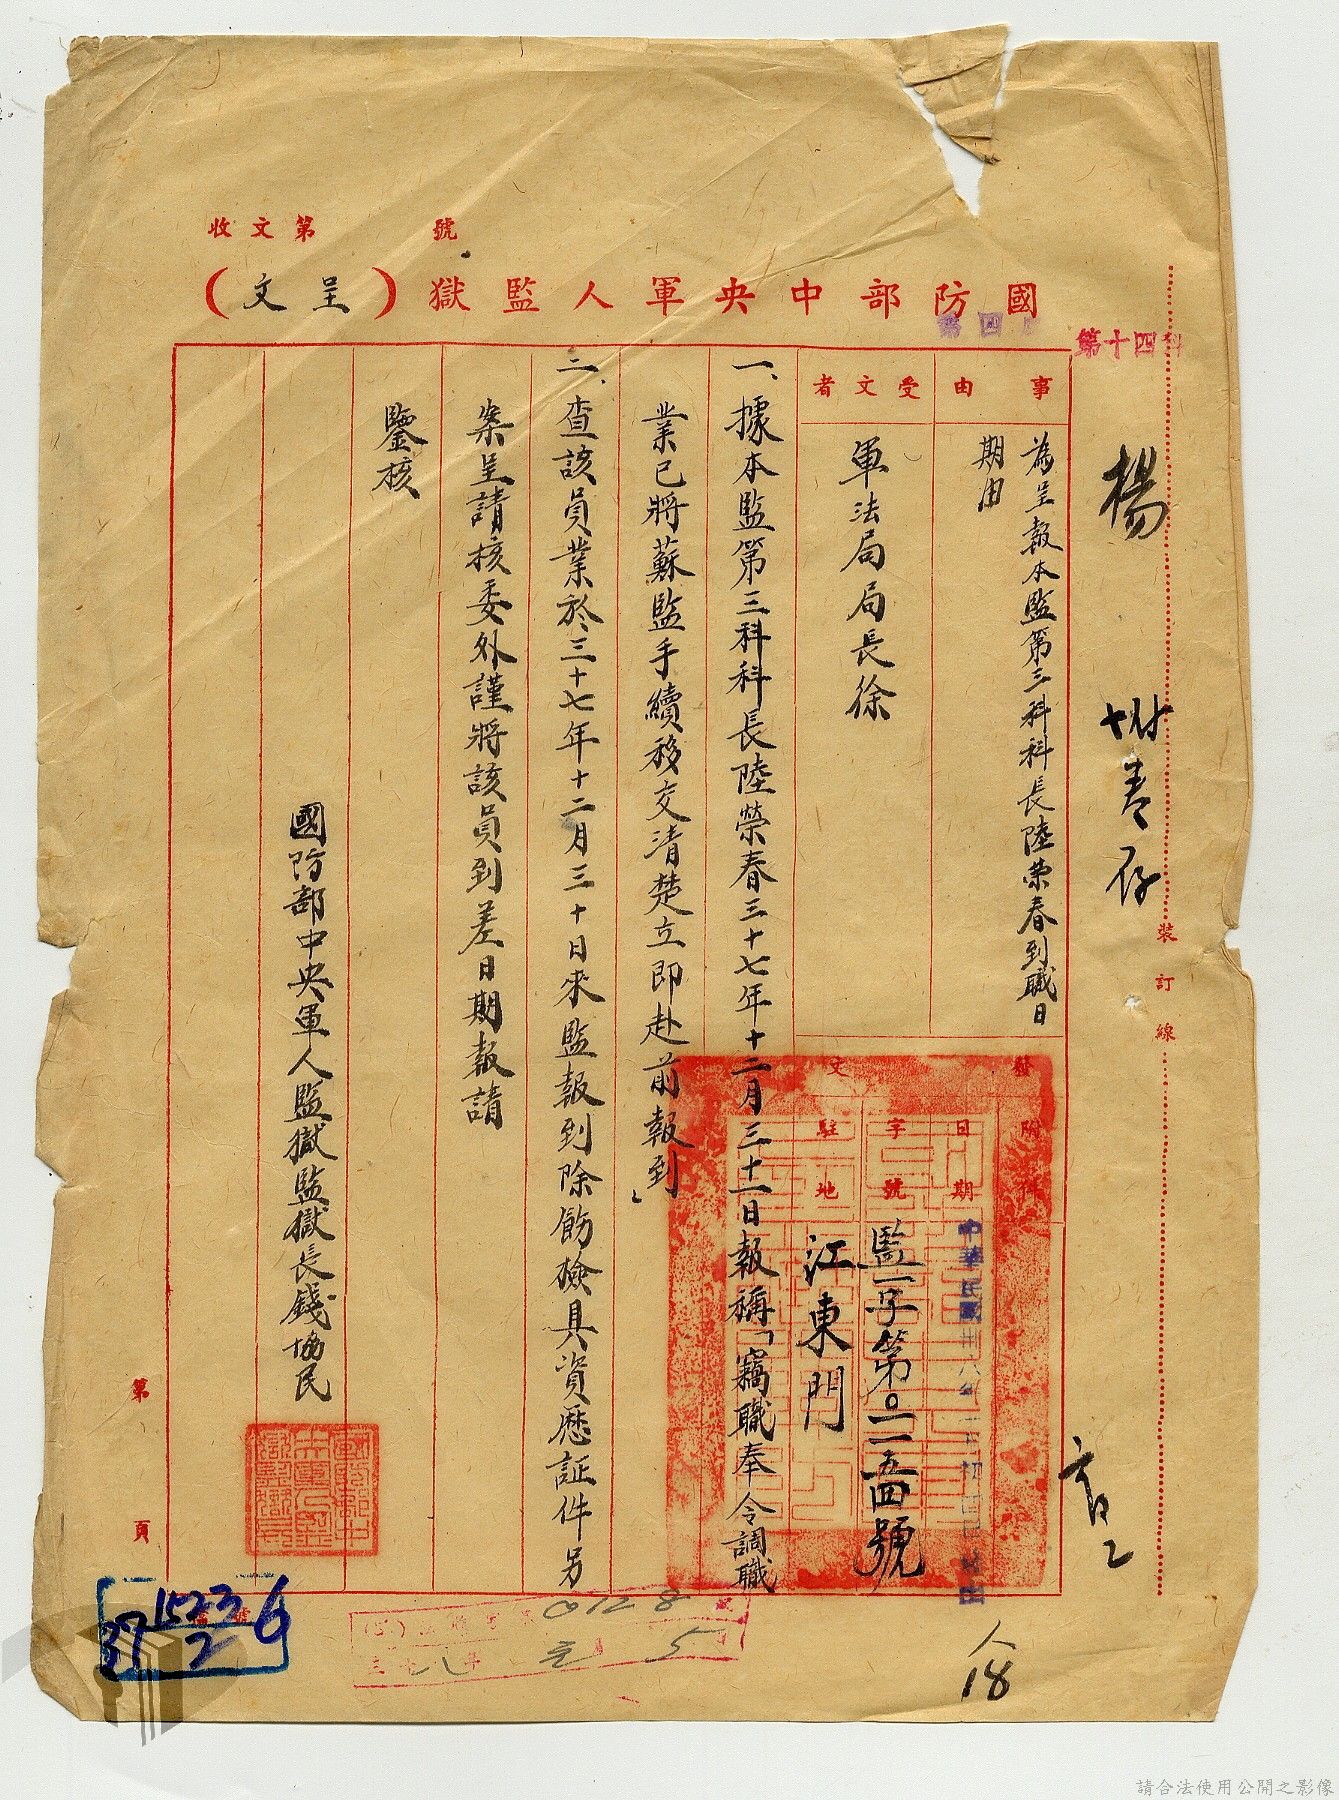 收文第　　號
國防部中央軍人監獄（呈文）
第十四科
第四
事由
為呈報本監第三科科長陸榮春到職日
期由
受文者
軍法局局長徐
附件
發文
日期
中華民國卅八年
字號
監一字第〇一一五四號
駐地
江東門
一、據本監第三科科長陸榮春三十七年十二月三十一日報稱「竊職奉令調職
業已將蘇監手續移交清楚立即赴前報到」
二、查該員業於三十七年十二月三十日來監報到除飭檢具資歷証件另
案呈請核委外謹將該員到差日期報請
鑒核
國防部中央軍人監獄監獄長錢協民
裝訂線
第　頁
楊
存
0128
三十八年元月5日
檔號
37 15236
2
18
請合法使用公開之影像